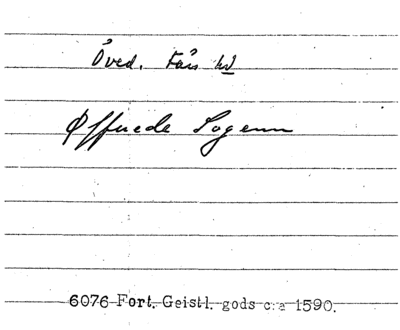 Öved. Färs hd
Øffuede Sogenn
6076 Fort. Geistl. gods c:a 1590.